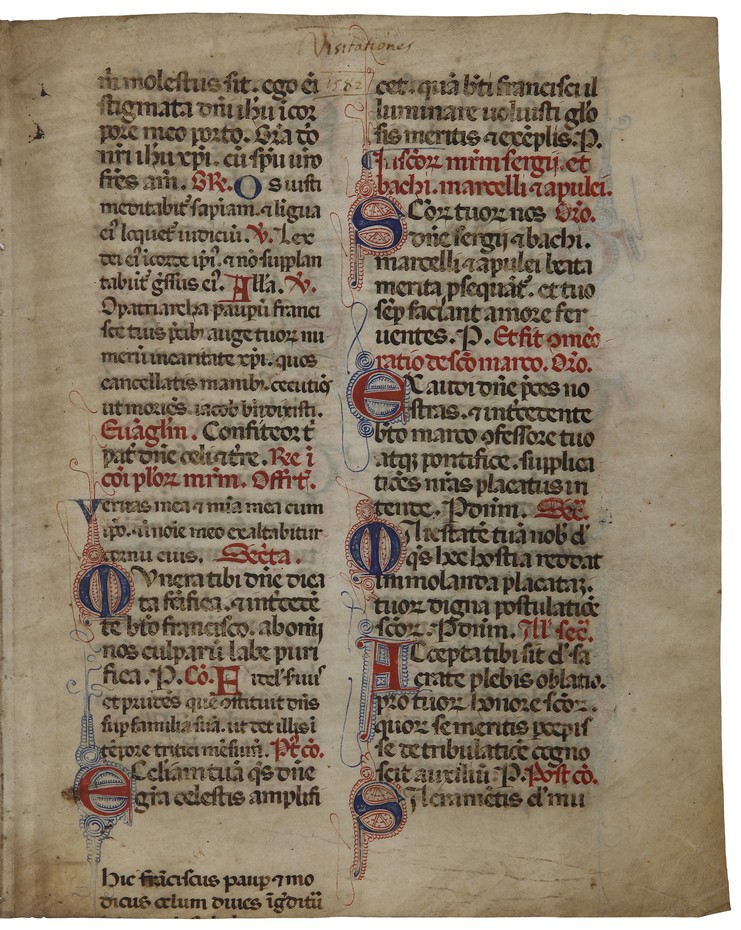 Visitationes
1582
m molestus sit. ego ei
stigmata dñi ihu i cor
pore meo porto. Gra dñi
nri ihu xpi. cu spu uro
fres am. GR. Os iusti
meditabit sapiam. ⁊ ligua
ei loquet iudiciu. V. Lex
dei ei i corde ipi. ⁊ no supplan
tabut gssus ei. Alla. V.
O patriarcha paupu franci
sce tuis pcib auge tuor nu
meru in caritate xpi. quos
cancellatis manib cecutiēs
ut moriēs iacob bndixisti.
Euaglm. Confiteor t
pat dñe celi ⁊ tre. Re i
coi plor mrm. Offrt.
Veritas mea ⁊ mia mea cum
ipo. ⁊ i noie meo exaltabitur
cornu eius. Secta.
Munera tibi dñe dica
ta scifica. ⁊ intcede
te bto francisco. ab omi
nos culparu labe puri
fica. P. Co. Fidel suus
et prudes que ostituit dñs
sup familia sua. ut det illis i
tepore tritici mesura. Pt co.
Eccliam tua qs dñe
gra celestis amplifi
hic franciscus paup ⁊ mo
dicus celum diues igditu
cet. qua bti francisci il
luminare uoluisti glo
sis meritis ⁊ exeplis. P.
Iu scor mrm sergii. et
bachi. marcelli ⁊ apulei.
Scor tuor nos Oro.
dñe sergii ⁊ bachi.
marcelli ⁊ apulei beata
merita psequat. et tuo
sep faciant amore fer
uentes. P. Et fit ome
ratio de sco marco. Oro.
Exaudi dñe pces no
stras. ⁊ intcedente
bto marco ofessore tuo
atq pontifice. supplica
tiões nras placatus in
tende. P dnm. Sec.
Maiestate tua nob d
qs hec hostia reddat
immolanda placata.
tuor digna postulatioe
scor. P dnm. All sec.
Accepta tibi sit d sa
crate plebis oblatio.
pro tuor honore scor.
quor se meritis pcepis
se de tribulatioe cogno
scit auxiliu. P. Post co.
Sacrametis d mu